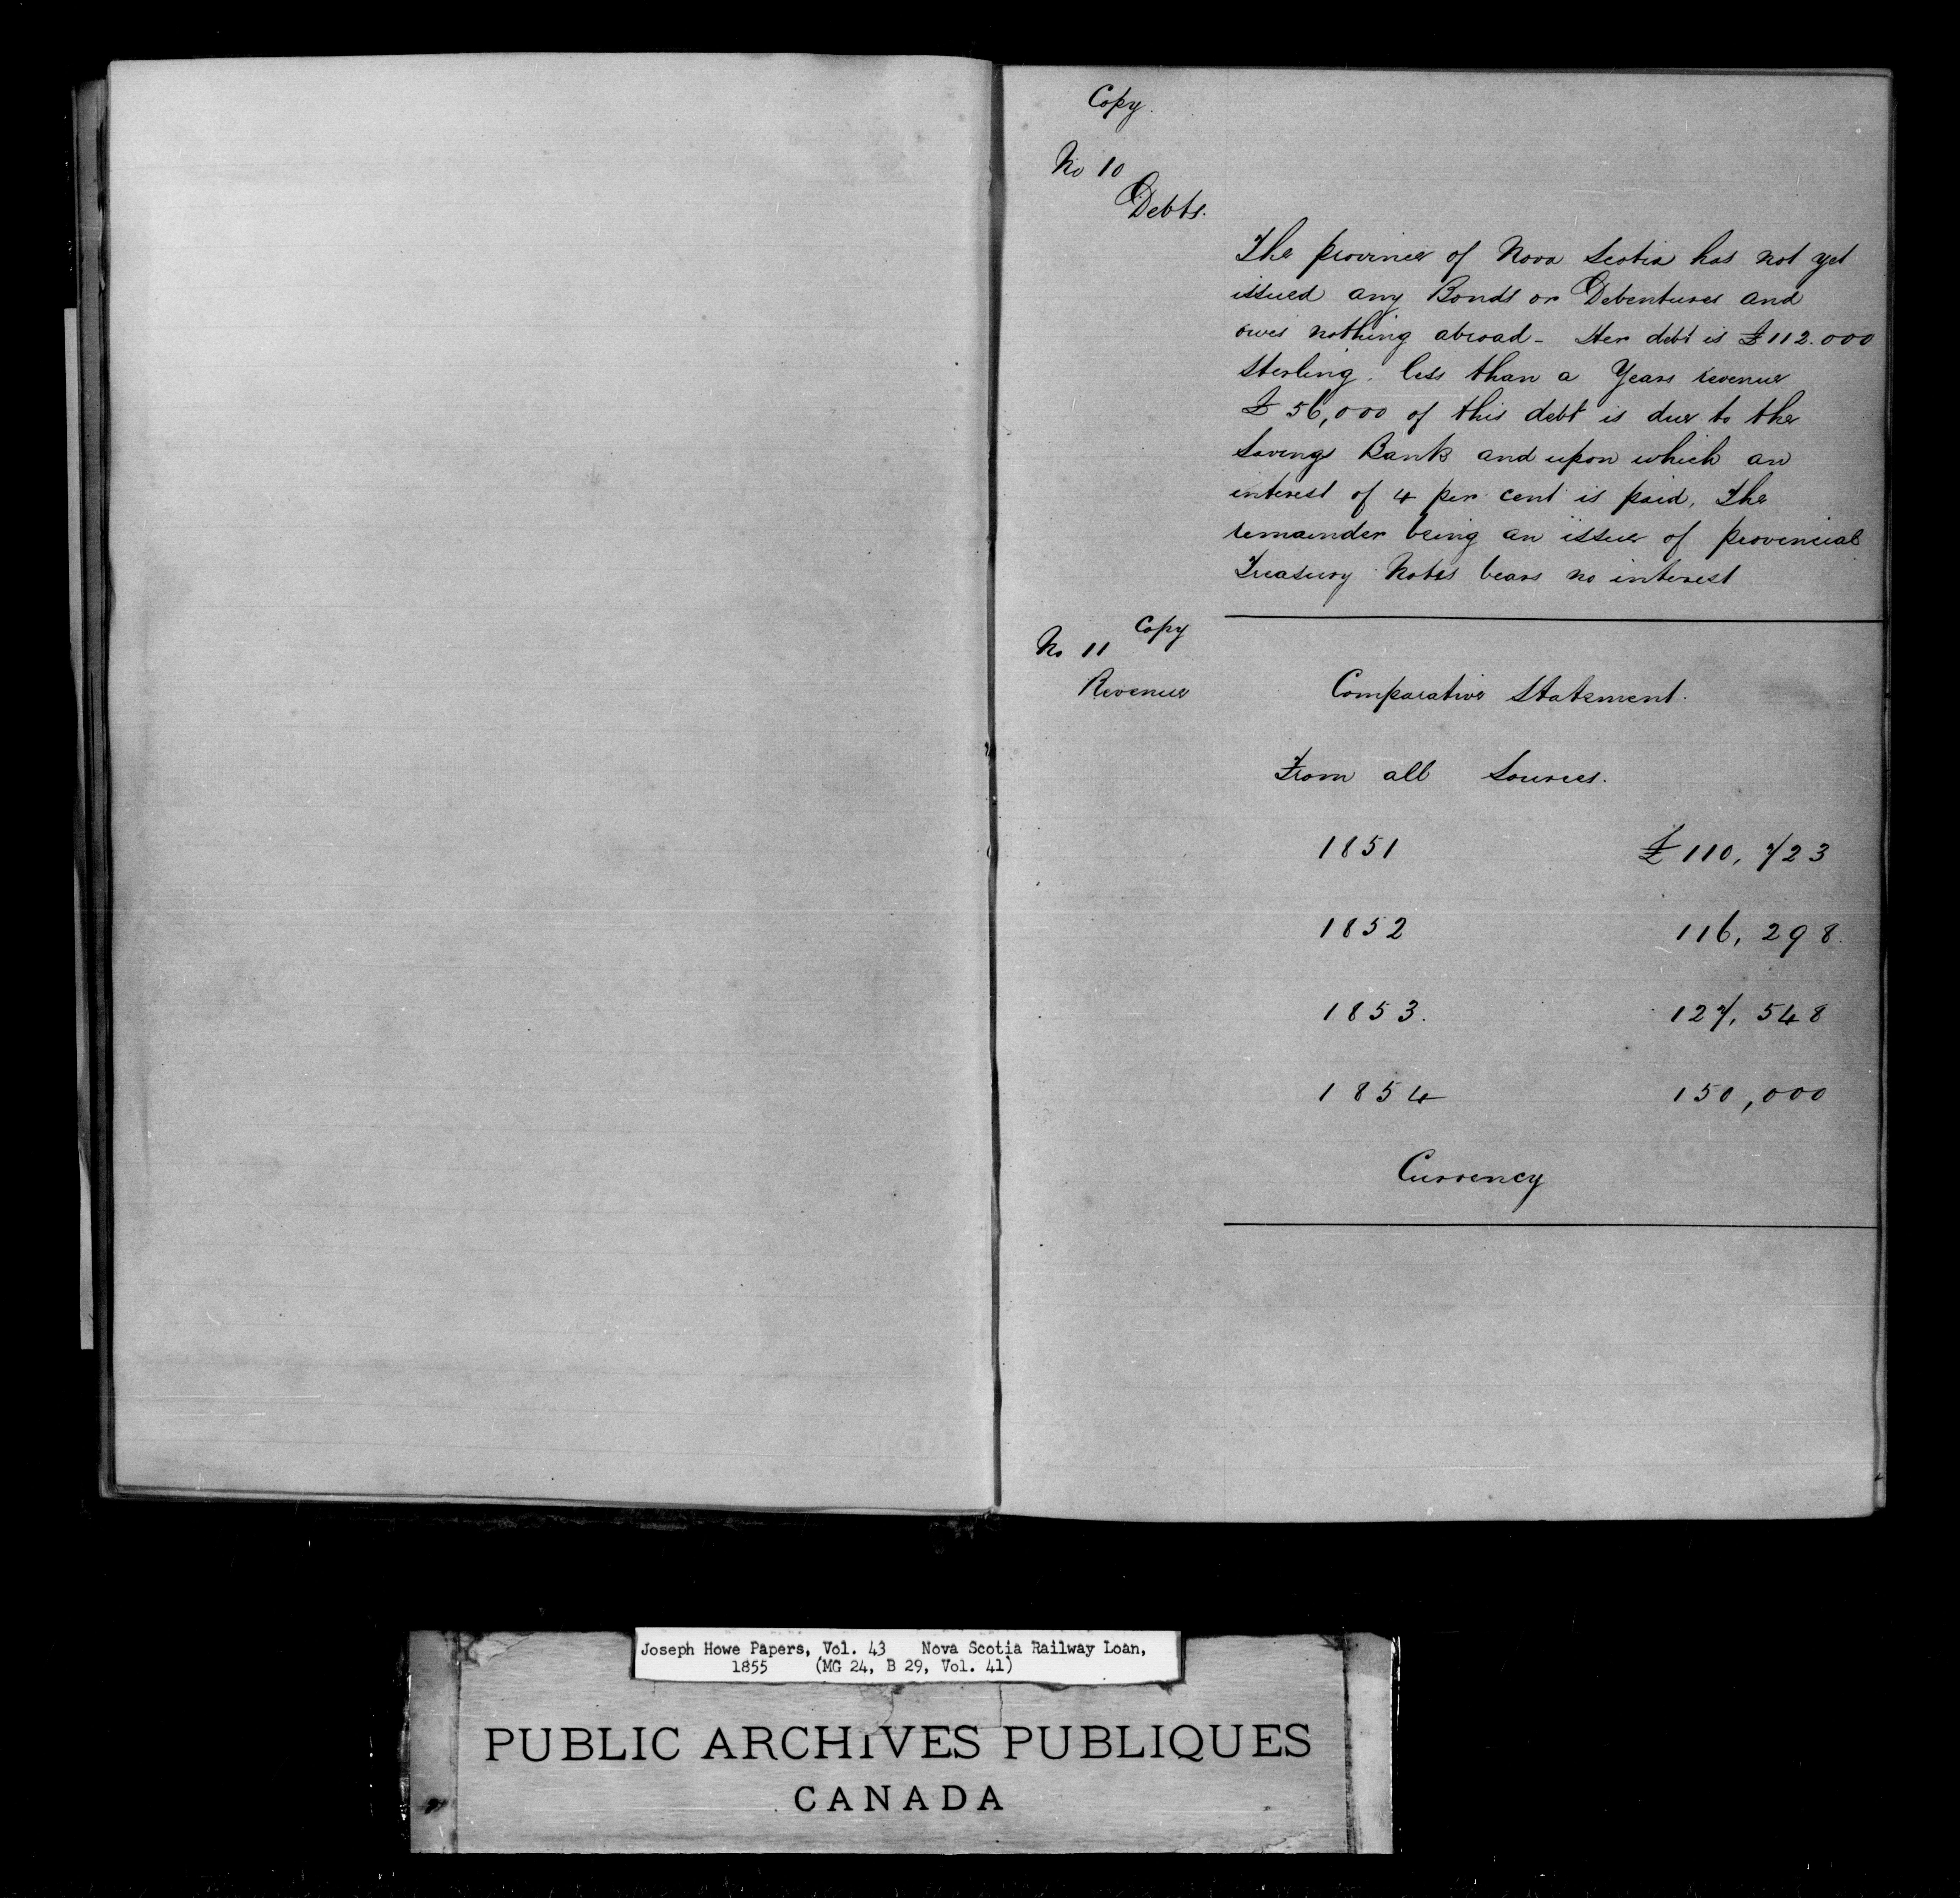 Copy.
No 10
Debts.
The province of Nova Scotia has not yet
issued any Bonds or Debentures and
owes nothing abroad - Her debt is £112.000
Sterling. less than a Years revenue
£56,000 of this debt is due to the
Savings Bank and upon which an
interest of 4 per cent is paid, The
remainder being an issue of provincial
Treasury Notes bears no interest
Copy
No 11
Revenue
Comparative Statement.
From all Sources.
1851 £110,723
1852 116,298.
1853. 127,548
1854 150,000
Currency
Joseph Howe Papers, Vol. 43 Nova Scotia Railway Loan,
1855 (MG 24, B 29, Vol. 41)
PUBLIC ARCHIVES PUBLIQUES
CANADA